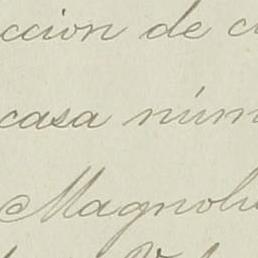 ccion de c
casa núm
Magnoli